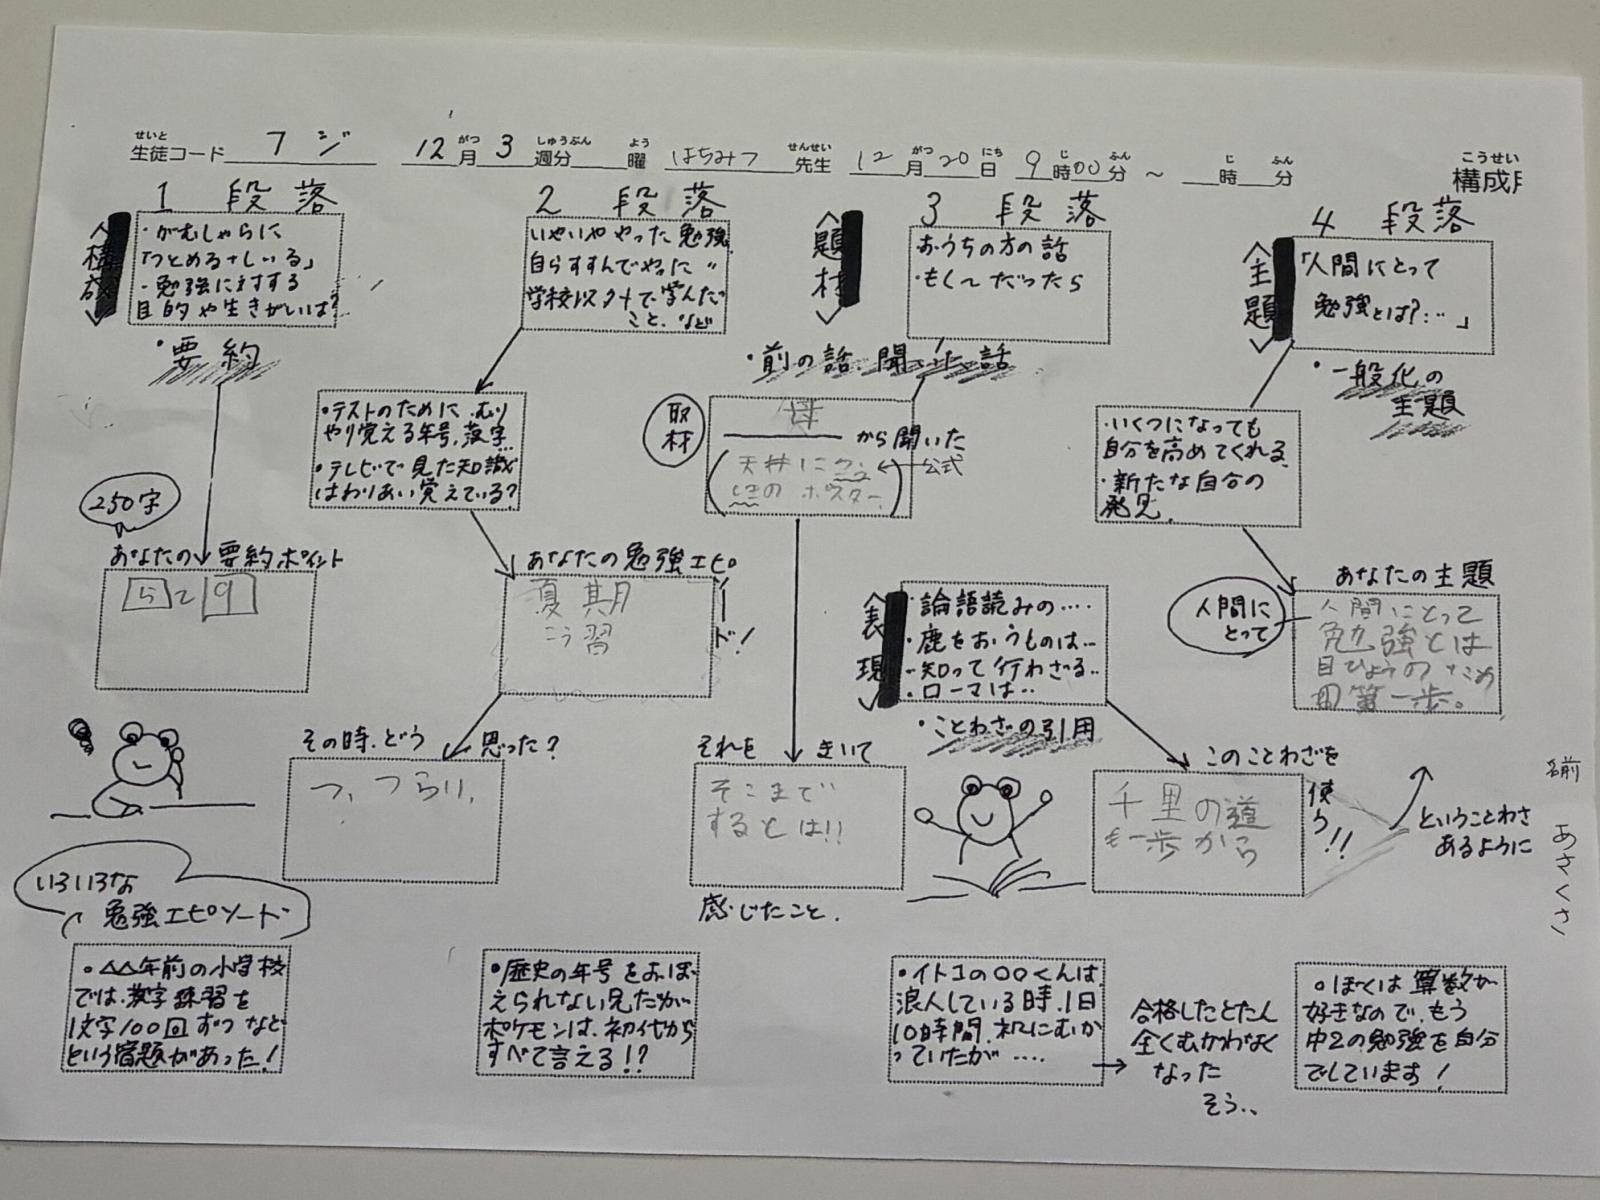 せいと がつ しゅうぶん よう せんせい がつ にち じ ふん じ ふん こうせい
生徒コード フジ 12月3週分 曜 はちみつ 先生 12月20日 9時00分 ～ 時 分 構成用
1 段落
〈構成〉
・がむしゃらに
「つとめる+しいる」
・勉強に対する
目的や生きがいは?
・要約
250字
あなたの要約ポイント
5と9
2 段落
いやいややった勉強
自らすすんでやった 〃
学校以外で学んだ
こと、など
・テストのために、むり
やり覚える年号、漢字…
・テレビで見た知識
はわりあい覚えている?
あなたの勉強エピソード!
夏期
こう習
その時、どう思った?
つ、つらい、
〈題材〉
3 段落
おうちの方の話
・もし〜だったら
・前の話、聞いた話
取材
母
から聞いた
天井に
のポスター
公式
それをきいて
そこまで
するとは!!
感じたこと、
〈主題〉
4 段落
「人間にとって
勉強とは?…」
・一般化の
主題
・いくつになっても
自分を高めてくれる、
・新たな自分の
発見、
あなたの主題
人間に
とって
人間にとって
勉強とは
目ひょうのため
の第一歩。
〈表現〉
・論語読みの‥‥
・鹿をおうものは‥
・知って行わざる‥
・ローマは‥
・ことわざの引用
このことわざを
使う!!
千里の道
も一歩から
ということわざ
あるように
名前 あさくさ
いろいろな
勉強エピソード
・△△年前の小学校
では、漢字練習を
1文字100回ずつなど
という宿題があった!
・歴史の年号をおぼ
えられない兄だが
ポケモンは、初代から
すべて言える!?
・イトコの〇〇くんは、
浪人している時、1日
10時間、机にむか
っていたが‥‥
→
合格したとたん
全くむかわなく
なった
そう‥
・ぼくは算数が
好きなので、もう
中2の勉強を自分
でしています!